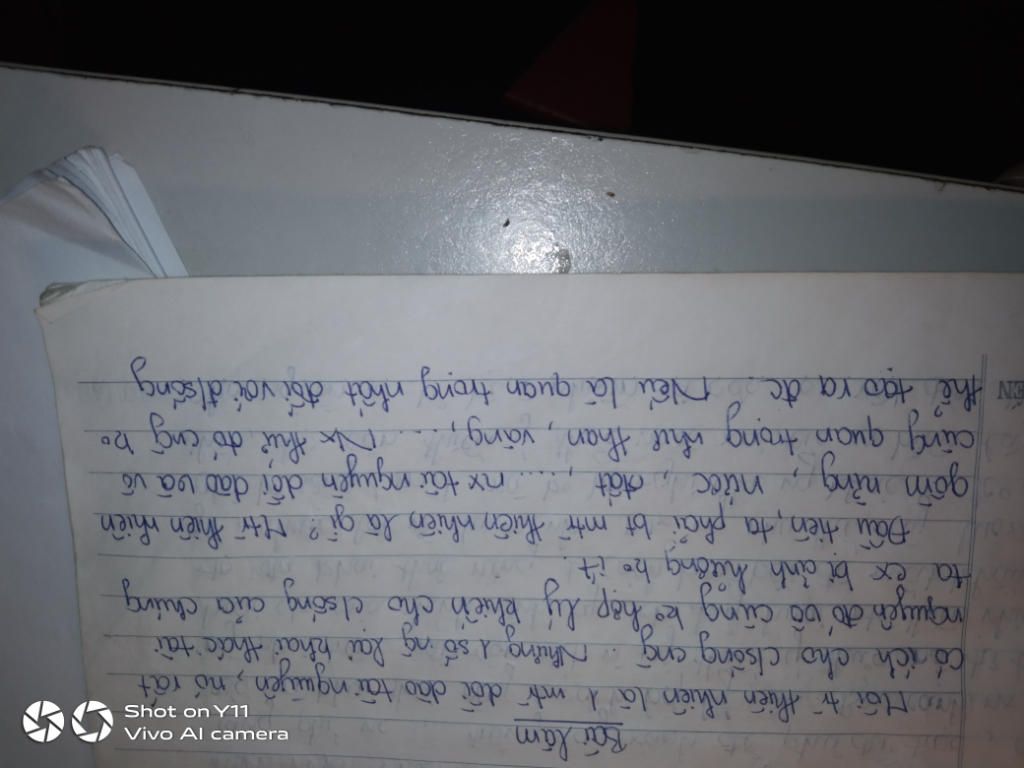 Bài làm
Môi tr thiên nhiên là 1 mtr dồi dào tài nguyên, nó rất
có ích cho clsống cng. Nhưng 1 số ng lại khai thác tài
nguyên đó vô cùng ko hợp lý khiến cho clsống của chúng
ta cx bị ảnh hưởng ko ít.
Đầu tiên, ta phải bt mtr thiên nhiên là gì? Mtr thiên nhiên
gồm nắng, nước, đất, .... nx tài nguyên dồi dào và vô
cùng quan trọng như than, vàng, .... Nx thứ đó cng ko
thể tạo ra đc. Nếu là quan trọng nhất đối với đ/sống
ÊN
Shot on Y11
Vivo AI camera